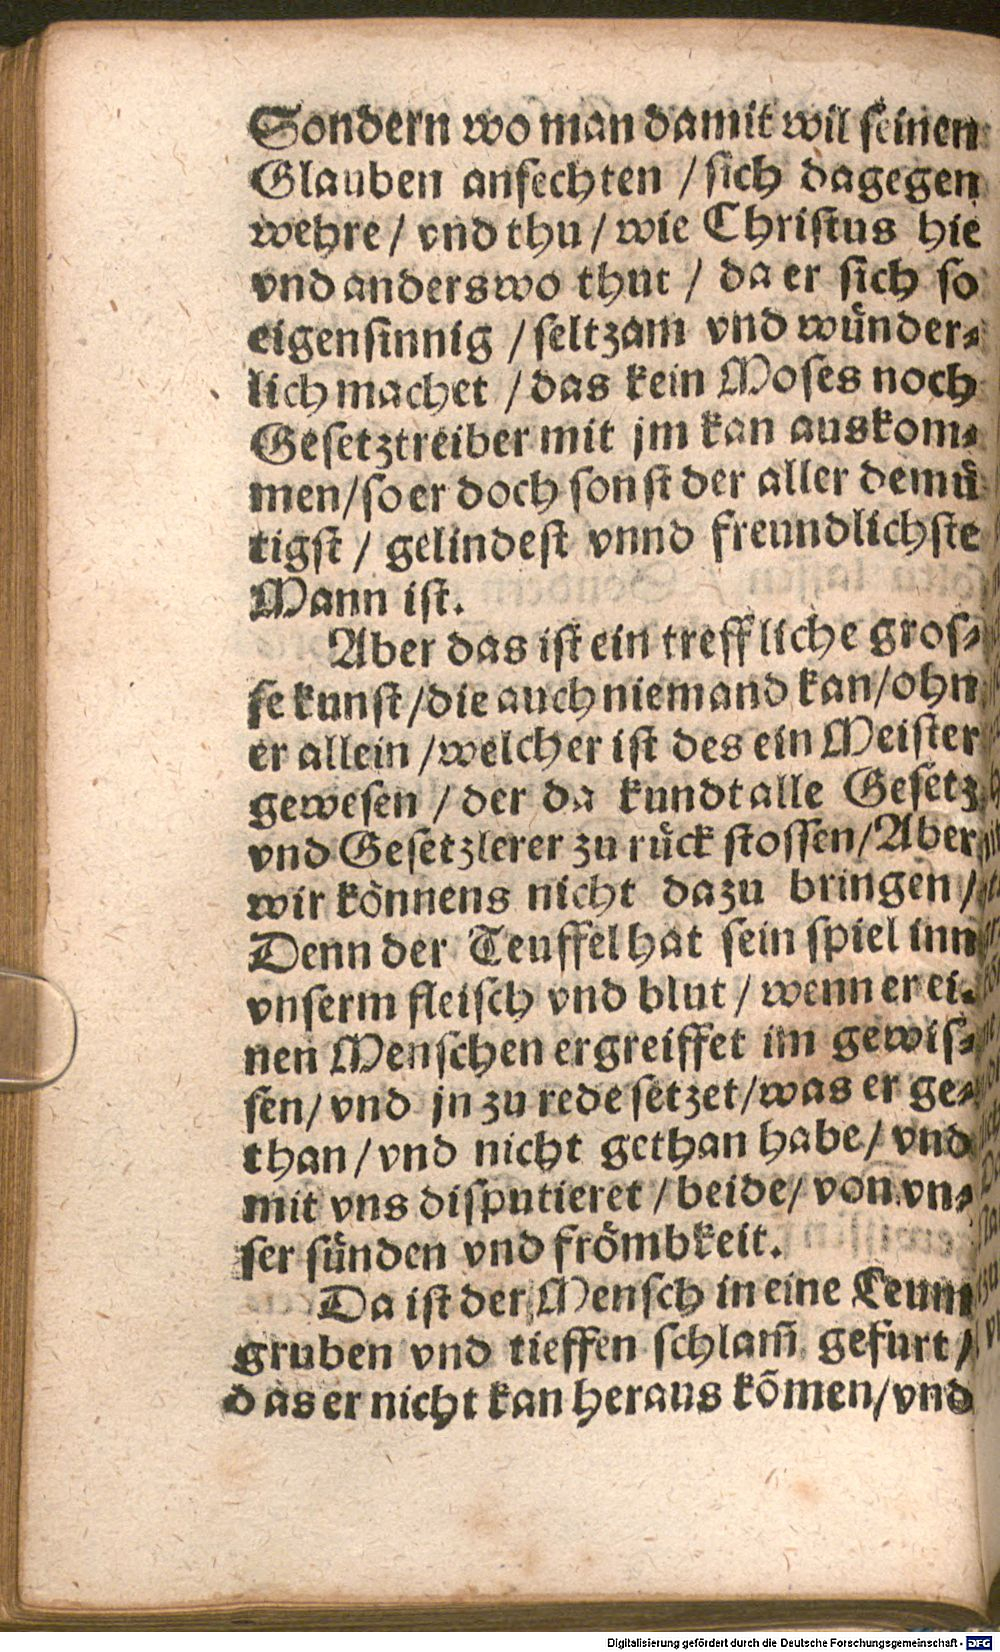 Sondern wo man damit wil seinen
Glauben anfechten / sich dagegen
wehre / vnd thu / wie Christus hie
vnd anderswo thut / da er sich so
eigensinnig / seltzam vnd wünder-
lich machet / das kein Moses noch
Gesetztreiber mit jm kan auskom-
men / so er doch sonst der aller demü
tigst / gelindest vnnd freundlichste
Mann ist.
Aber das ist ein treffliche gros-
se kunst / die auch niemand kan / ohn
er allein / welcher ist des ein Meister
gewesen / der da kundt alle Gesetz
vnd Gesetzlerer zu rück stossen / Aber
wir können s nicht dazu bringen /
Denn der Teuffel hat sein spiel inn
vnserm fleisch vnd blut / wenn er ei-
nen Menschen ergreiffet im gewis-
sen / vnd jn zu rede setzet / was er ge-
than / vnd nicht gethan habe / vnd
mit vns disputieret / beide / von vn-
ser sünden vnd frömbkeit.
Da ist der Mensch in eine
gruben vnd tieffen schlam̃ gefurt /
das er nicht kan heraus kõmen / vnd
Digitalisierung gefördert durch die Deutsche Forschungsgemeinschaft - DFG